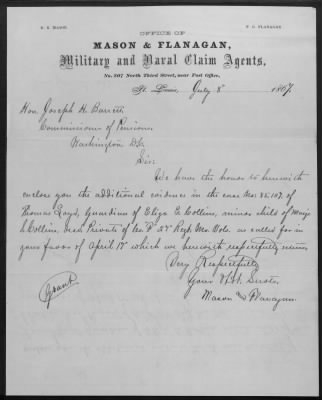 E. E. MASON.
F. C. FLANAGAN.
OFFICE OF
MASON & FLANAGAN,
Military and Naval Claim Agents,
No. 307 North Third Street, near Post Office,
St. Louis, July 8" 1867.
Hon. Joseph H. Barrett
Commissioner of Pensions
Washington D.C.
Sir:
We have the honor to herewith
enclose you the additional evidence in the case No.
Thomas Loyd, Guardian of Eliza E Collins, minor child of
Collins, dec'd Private of Co. F 27" Regt Mo. Vols. as called for in
your favor of April 17" which we herewith respectfully return
Very Respectfully
Your Obt. Servts.
Mason & Flanagan